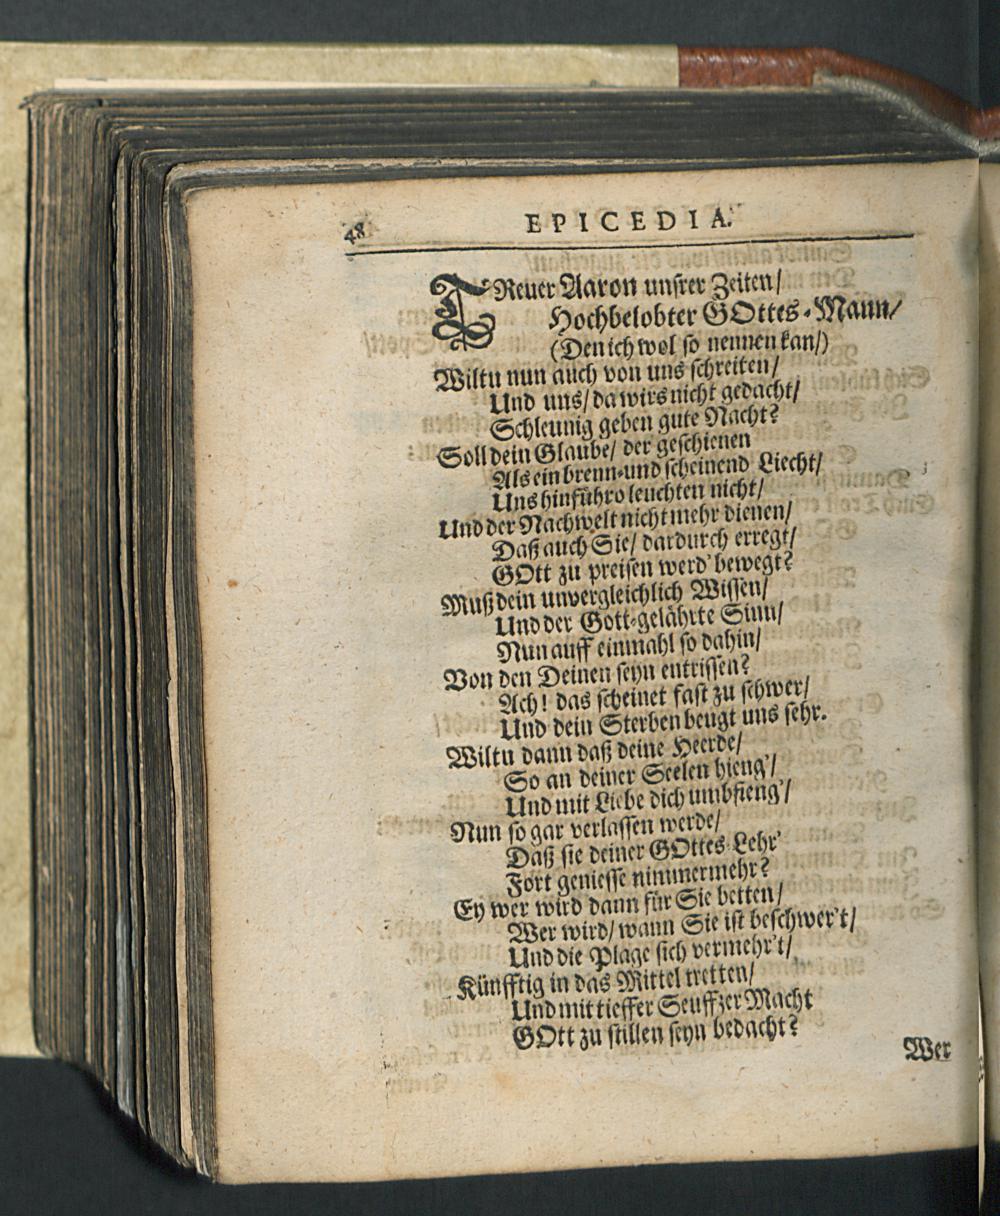 48 EPICEDIA.
TReuer Aaron unsrer Zeiten/
Hochbelobter GOttes-Mann/
(Den ich wol so nennen kan/)
Wiltu nun auch von uns schreiten/
Und uns/ da wirs nicht gedacht/
Schleunig geben gute Nacht?
Soll dein Glaube/ der geschienen
Als ein brenn-und scheinend Liecht/
Uns hinführo leuchten nicht/
Und der Nachwelt nicht mehr dienen/
Daß auch Sie/ dardurch erregt/
GOtt zu preisen werd' bewegt?
Muß dein unvergleichlich Wissen/
Und der Gott-gelährte Sinn/
Nun auff einmahl so dahin/
Von den Deinen seyn entrissen?
Ach! das scheinet fast zu schwer/
Und dein Sterben beugt uns sehr.
Wiltu dann daß deine Heerde/
So an deiner Seelen hieng'/
Und mit Liebe dich umbfieng'/
Nun so gar verlassen werde/
Daß sie deiner GOttes-Lehr'
Fort geniesse nimmermehr?
Ey wer wird dann für Sie betten/
Wer wird/ wann Sie ist beschwer't/
Und die Plage sich vermehr't/
Künfftig in das Mittel tretten/
Und mit tieffer Seuffzer Macht
GOtt zu stillen seyn bedacht?
Wer